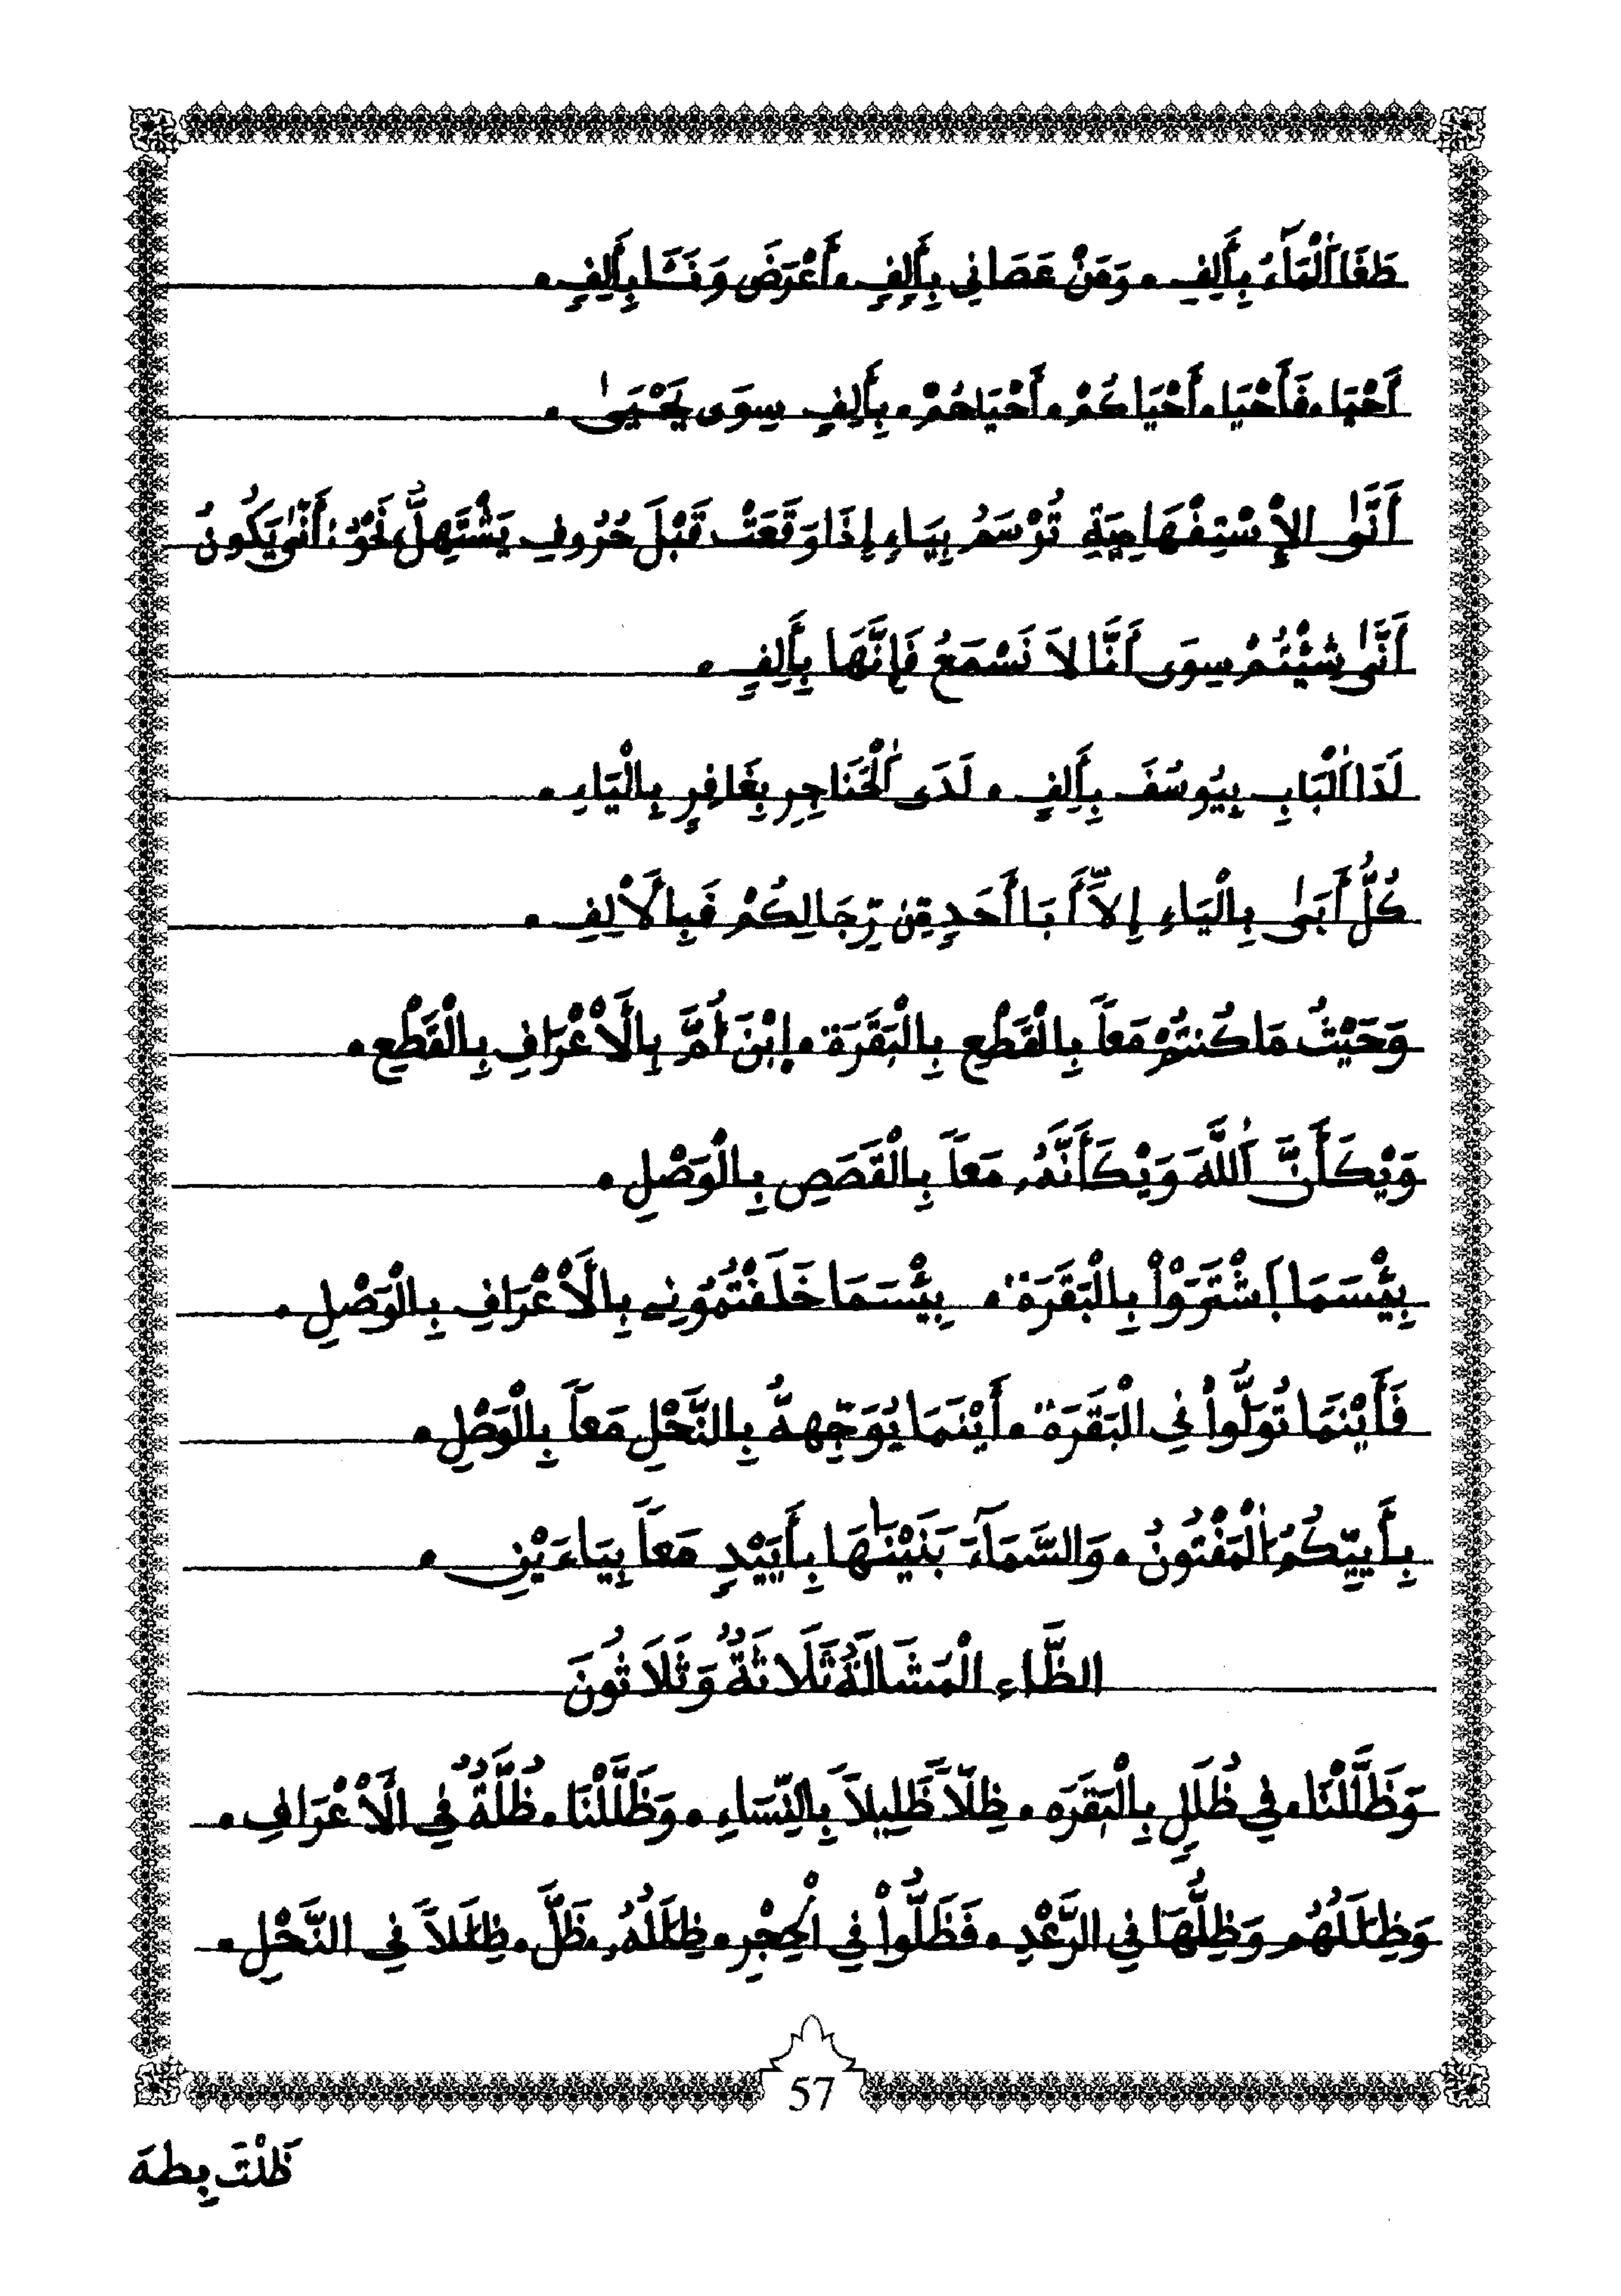 طَغَا اَلْمَآءُ بِأَلِفِ . وَمَنْ عَصَانِي بِأَلِفٍ . أَعْرَضَ وَنَـَٔا بِأَلِفٍ .
أَحْيَا . فَأَحْيَا . أَحْيَاكُمْ . أَحْيَاهُمْ . بِأَلِفٍ سِوَى يَحْيَىٰ .
أَنَّىٰ الإِسْتِفْهَامِيَةِ تُرْسَمُ بِيَاءٍ إِذَا وَقَعَتْ قَبْلَ حُرُوفِ يَشْتَهِلُّ نَحْوُ : أَنَّىٰ يَكُونُ
أَنَّىٰ شِئْتُمْ سِوَى أَنَّا لاَ نَسْمَعُ فَإِنَّهَا بِأَلِفٍ .
لَدَا اَلْبَابِ بِيُوسُفَ بِأَلِفٍ . لَدَى اَلْحَنَاجِرِ بِغَافِرٍ بِالْيَاءِ .
كُلُّ أَبَىٰ بِالْيَاءِ إِلاَّ أَبَا أَحَدٍ مِّن رِّجَالِكُمْ فَبِالأَلِفِ .
وَحَيْثُ مَا كُنتُمْ مَعاً بِالْقَطْعِ بِالْبَقَرَةِ . إِبْنَ أُمَّ بِالْأَعْرَافِ بِالْقَطْعِ .
وَيْكَأَنَّ اَللَّهَ وَيْكَأَنَّهُ مَعاً بِالْقَصَصِ بِالْوَصْلِ .
بِئْسَمَا اَشْتَرَوْاْ بِالْبَقَرَةِ . بِئْسَمَا خَلَفْتُمُونِے بِالْأَعْرَافِ بِالْوَصْلِ .
فَأَيْنَمَا تُوَلُّواْ فِي الْبَقَرَةِ . أَيْنَمَا يُوَجِّههُّ بِالنَّحْلِ مَعاً بِالْوَصْلِ .
بِأَييِّكُمُ اَلْمَفْتُونُ . وَالسَّمَآءَ بَنَيْنَٰهَا بِأَييْدٍ مَعاً بِيَاءَيْنِ .
الظَّاءِ الْمَشَالَةُ ثَلَاثَةٌ وَثَلَاثُونَ
وَظَلَّلْنَا . فِي ظُلَلٍ بِالْبَقَرَه . ظِلّاً ظَلِيلاً بِالنِّسَاءِ . وَظَلَّلْنَا . ظُلَّةٌ فِي الْأَعْرَافِ .
وَظِلَٰلُهُم وَظِلُّهَا فِي الرَّعْدِ . فَظَلُّواْ فِي الْحِجْرِ . ظِلَٰلُهُ . ظَلَّ . ظِلَٰلاً فِي النَّحْلِ .
57
ظَلْتَ بِطه